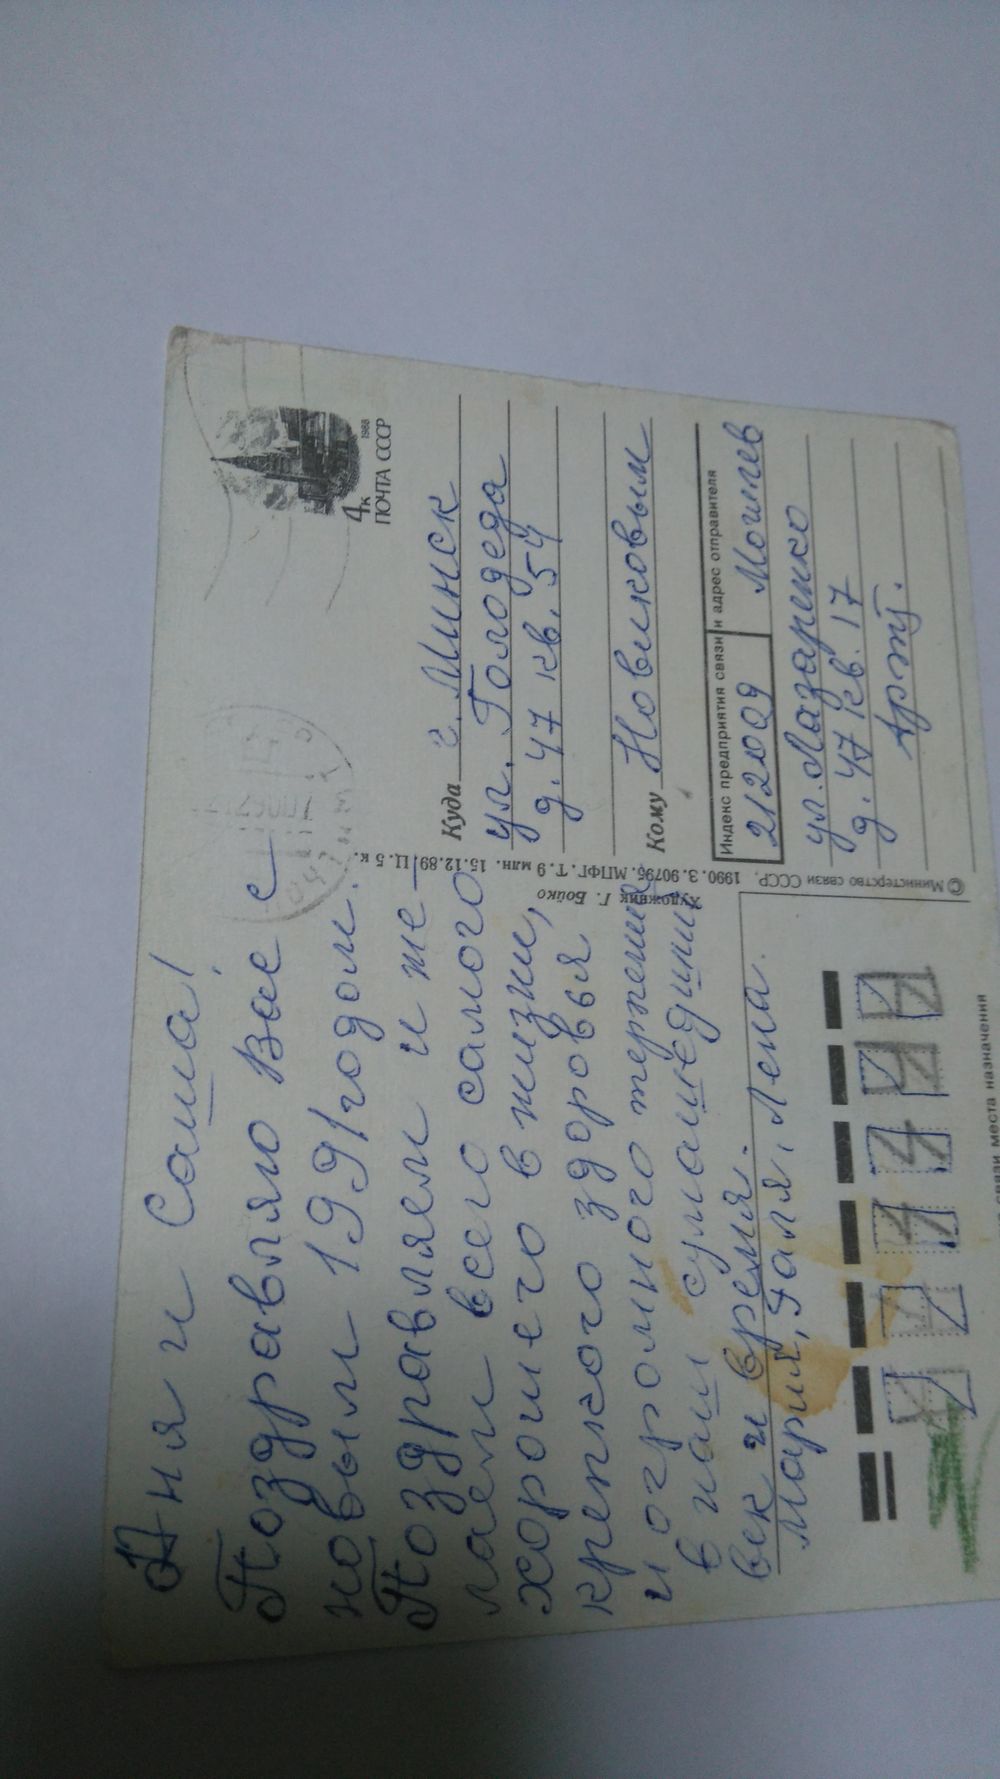 Аня и Саша!
Поздравляю Вас с
новым 1991 годом.
Поздравляем и же-
лаем всего самого
хорошего в жизни,
крепкого здоровья
и огромного терпения
в наш сумасшедший
век и время.
Мария, Галя, Лена.
4 к 1988
ПОЧТА СССР
Куда г. Минск
ул. Голодеда
д. 47 кв. 54
Кому Новиковым
Индекс предприятия связи и адрес отправителя
212009 Могилев
ул. Лазаренко
д. 47 кв. 17
Арт.
© Министерство связи СССР. 1990. З. 90795. МПФГ. Т. 9 млн. 15.12.89. Ц. 5 к.
Художник Г. Бойко
связи места назначения